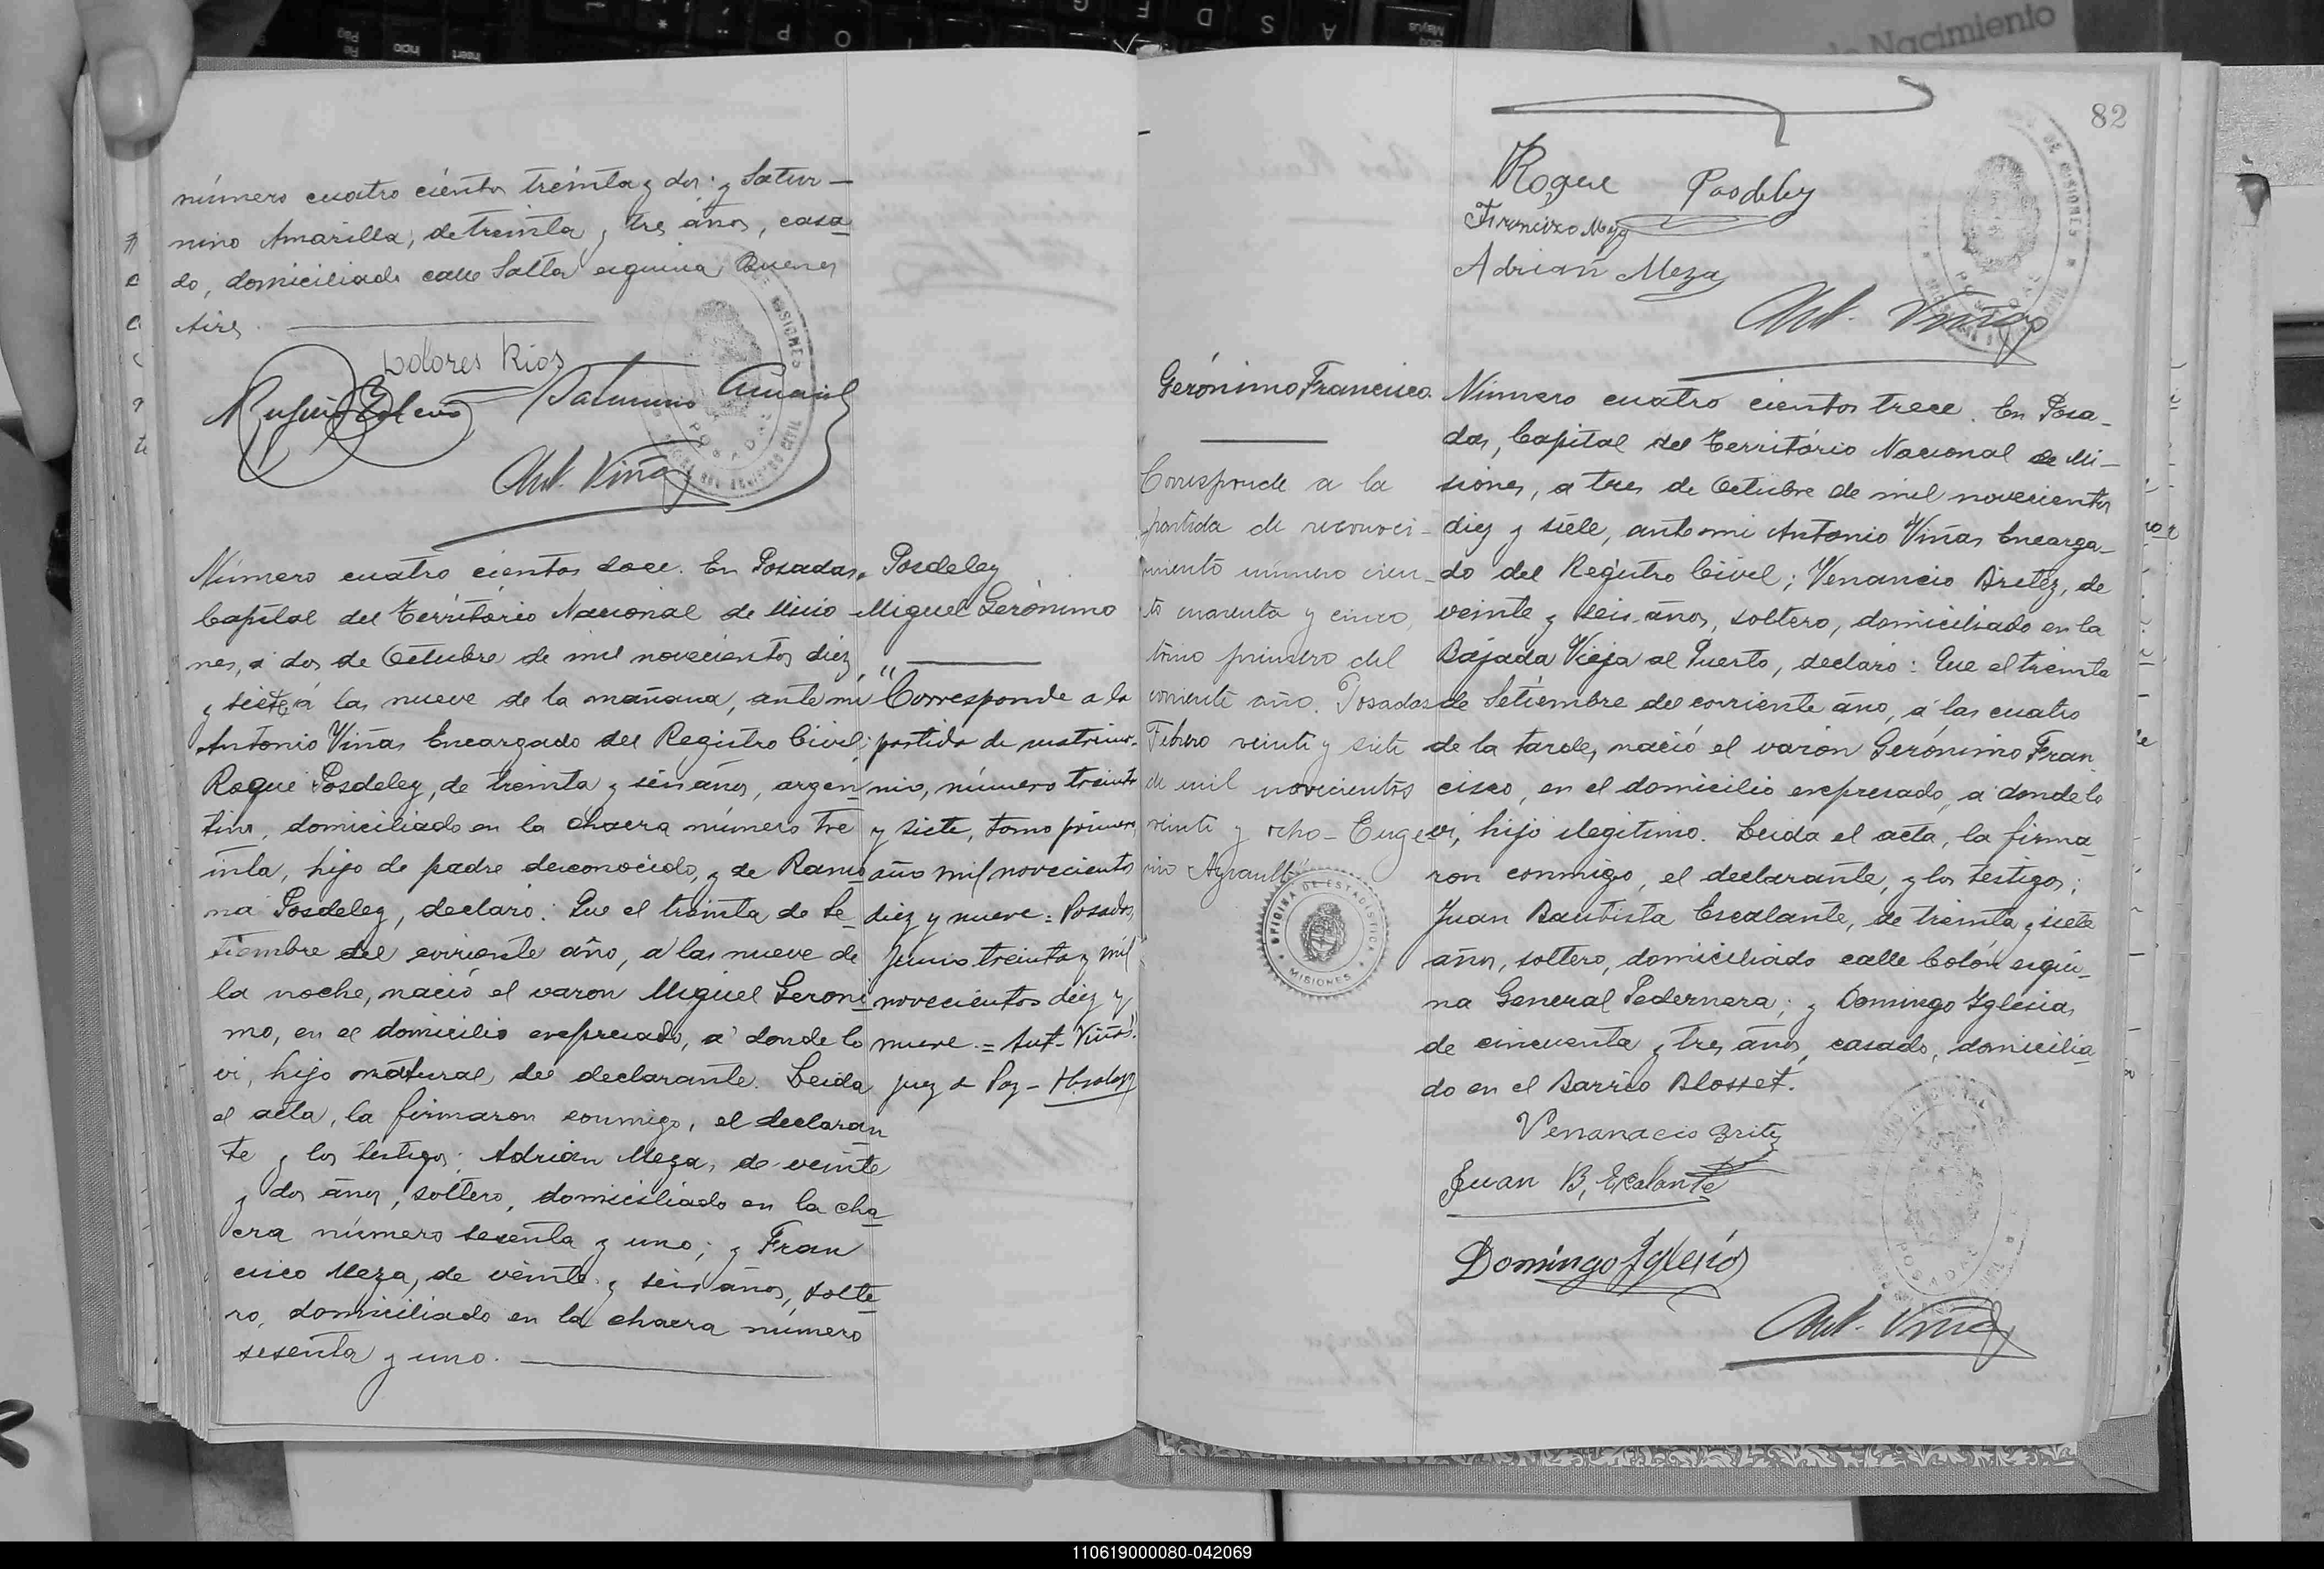 número cuatro cientos treinta y dos; y Satur-
nino Amarilla, de treinta y tres años, casa
do, domiciliado calle Salta esquina Buenos
Aires.
Dolores Rios
Saturnino Amaril
Ant. Viñas
Número cuatro cientos doce. En Posadas,
Capital del Território Nacional de Misio
nes, a dos de Octubre de mil novecientos diez
y siete, á las nueve de la mañana, ante mi
Antonio Viñas Encargado del Registro Civil;
Roque Posdeley, de treinta y seis años, argen
tino, domiciliado en la chacra número tre
inta, hijo de padre desconocido, y de Ramo
na Posdeley, declaró: Que el treinta de Se
tiembre del corriente año, a las nueve de
la noche, nació el varon Miguel Geroni
mo, en el domicilio expresado, a donde lo
vi, hijo natural del declarante. Leida
el acta, la firmaron conmigo, el declaran
te y los testigos; Adrián Meza, de veinte
y dos años, soltero, domiciliado en la cha
cra número sesenta y uno; y Fran
cisco Meza, de veinte y seis años, solte
ro, domiciliado en la chacra número
sesenta y uno.
Posdeley
Miguel Gerónimo
"Corresponde a la
partida de matrimo-
nio, número treinta
y siete, tomo primero,
año mil novecientos
diez y nueve = Posadas,
Junio treinta y mil
novecientos diez y
nueve. = Ant. Viñas"
Juez de Paz -
82
Roque Posdeley
Francisco Meza
Adrián Meza
Ant. Viñas
Gerónimo Francisco.
Corresponde a la
partida de reconoci-
miento número cien-
to cuarenta y cinco,
tomo primero del
corriente año. Posadas
Febrero veinte y siete
de mil novecientos
veinte y ocho - Euge
nio Ayrault"
OFICINA DE ESTADISTICA
MISIONES
Número cuatro cientos trece. En Posa-
das, Capital del Território Nacional de Mi-
siones, a tres de Octubre de mil novecientos
diez y siete, ante mi Antonio Viñas Encarga-
do del Registro Civil; Venancio Britez, de
veinte y seis años, soltero, domiciliado en la
Bajada Vieja al Puerto, declaró: Que el treinta
de Setiembre del corriente año, a las cuatro
de la tarde, nació el varón Gerónimo Fran
cisco, en el domicilio expresado, a donde lo
vi, hijo ilegitimo. Leida el acta, la firma
ron conmigo, el declarante, y los testigos;
Juan Bautista Escalante, de treinta y siete
años, soltero, domiciliado calle Colón esqui-
na General Pedernera; y Domingo Iglesias,
de cincuenta y tres años, casado, domicilia
do en el Barrio Blosset.
Venanacio Britez
Juan B, Escalante
Domingo Iglesias
Ant. Viñas
110619000080-042069